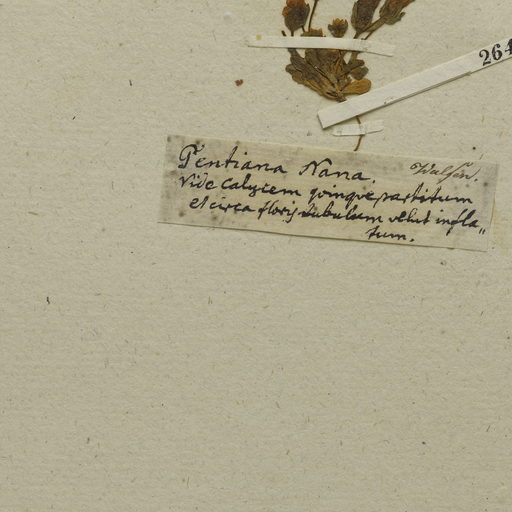 264
Gentiana Nana. Wulfen.
Vide calycem quinque partitum
et circa floris tubulum velut infla„
tum.